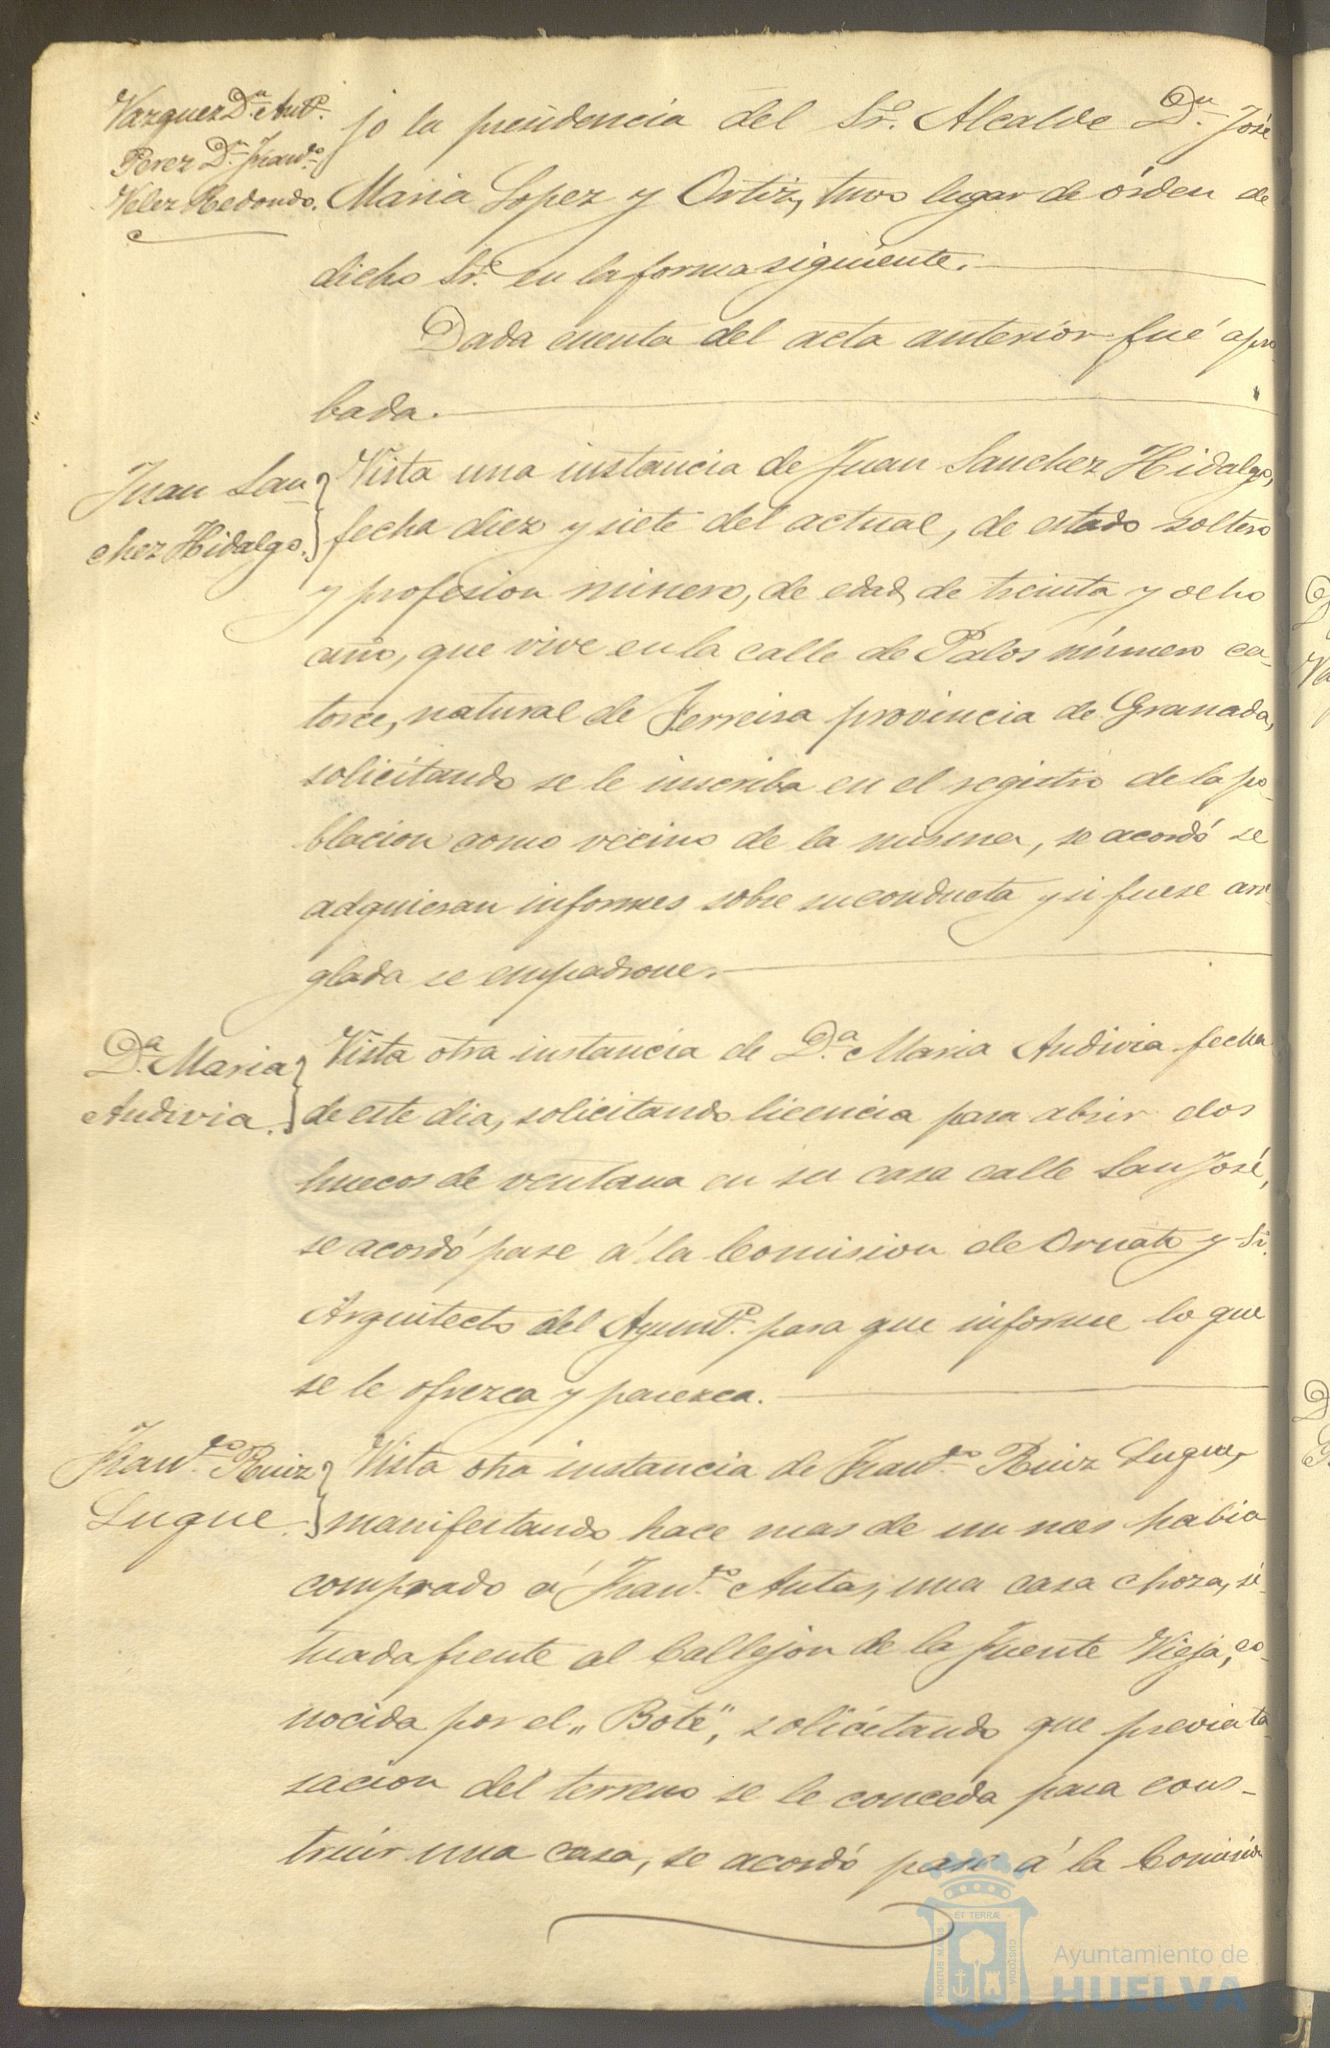 Vazquez Dn. Anto.
Perez Dn. Franco.
Velez Redondo.
jo la presidencia del Sr. Alcalde Dn. José
Maria Lopez y Ortiz, tuvo lugar de órden de
dicho Sr. en la forma siguiente.
Dada cuenta del acta anterior fué apro
bada.
Juan San
chez Hidalgo.
Vista una instancia de Juan Sanchez Hidalgo,
fecha diez y siete del actual, de estado soltero
y profesion minero, de edad de treinta y ocho
año, que vive en la calle de Palos número ca-
torce, natural de Ferreira provincia de Granada,
solicitando se le inscriba en el registro de la po-
blacion como vecino de la misma, se acordó se
adquieran informes sobre su conducta y si fuese arre
glada se empadrone.
Da. Maria
Andivia.
Vista otra instancia de Da. Maria Andivia fecha
de este dia, solicitando licencia para abrir dos
huecos de ventana en su casa calle San José,
se acordó pase á la Comision de Ornato y Sr.
Arquitecto del Ayunto. para que informe lo que
se le ofrezca y parezca.
Franco. Ruiz
Luque.
Vista otra instancia de Franco. Ruiz Luque,
manifestando hace mas de un mes habia
comprado á Franco. Antas, una casa choza, si-
tuada frente al Callejon de la Fuente Vieja, co-
nocida por el „Bote", solicitando que previa ta
sacion del terreno se le conceda para cons-
truir una casa, se acordó pase á la Comisión
PORTUS MARIS
ET TERRÆ
CUSTODIA
Ayuntamiento de
HUELVA